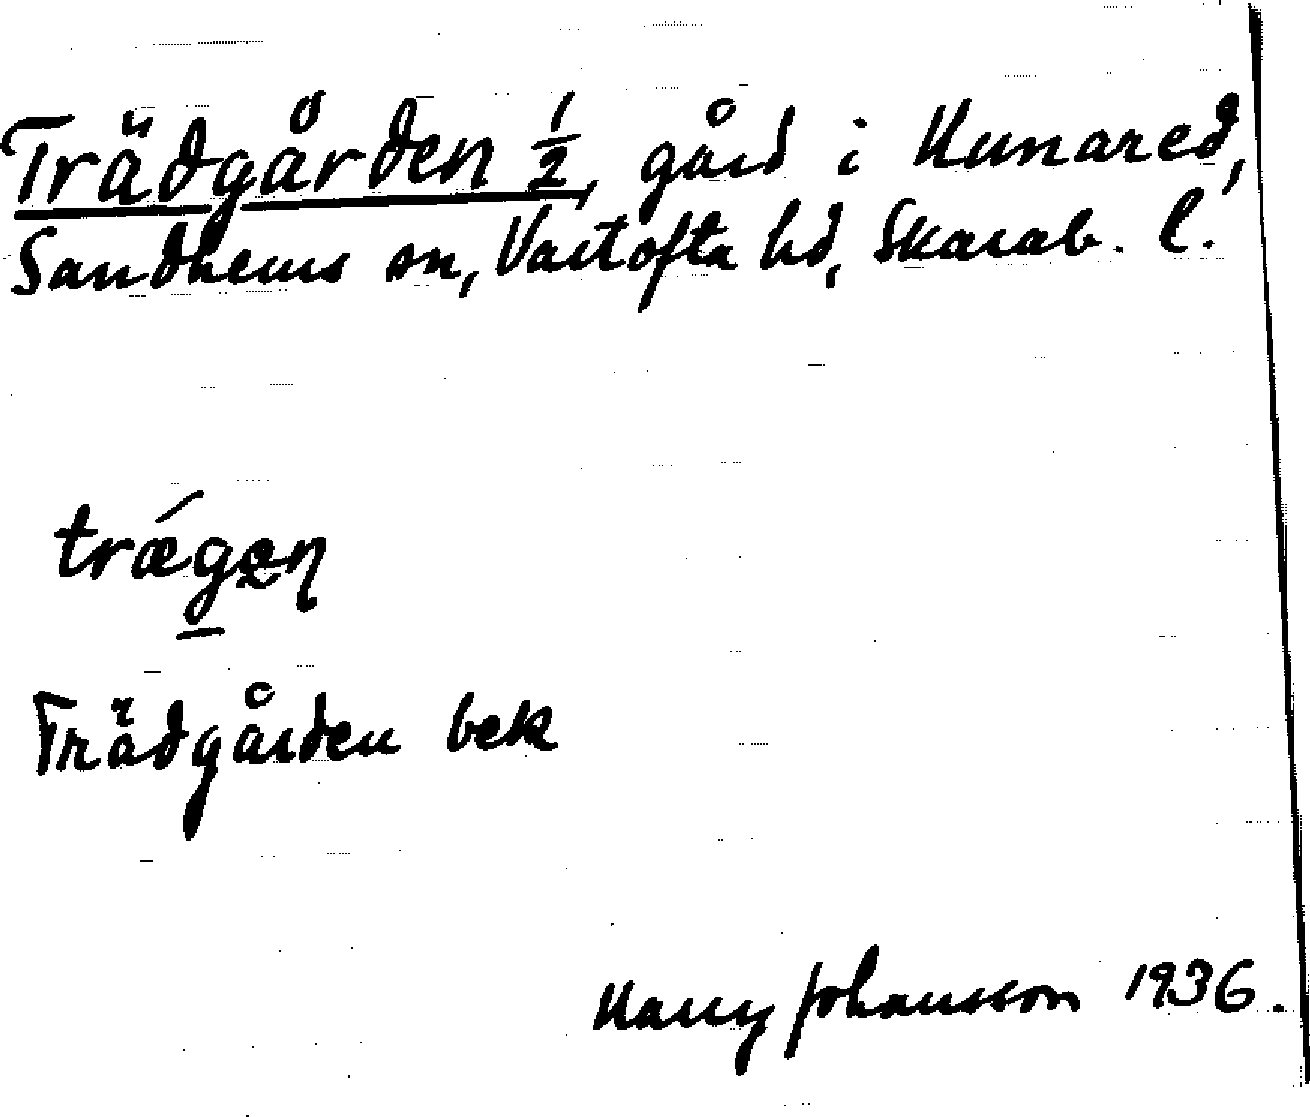 Trädgården 1/2, gård i Kunared,
Sandhems sn, Vartofta hd, Skarab. l.
trǽgen
Trädgården bek
Harry Johansson 1936.